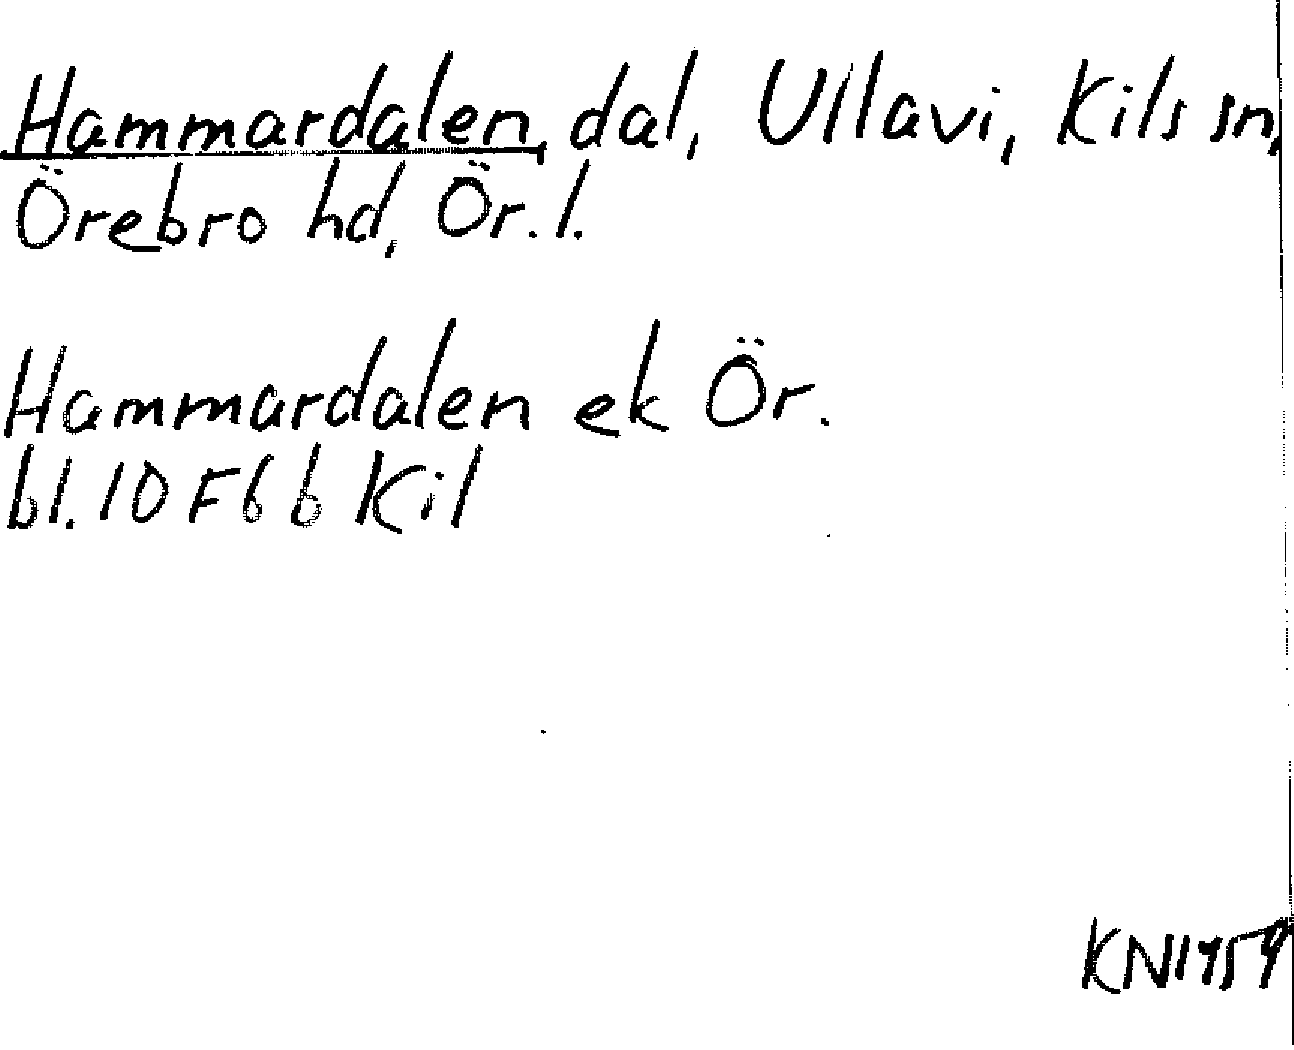 Hammardalen, dal, Ullavi, Kils sn,
Örebro hd, Ör. l.
Hammardalen ek Ör.
bl. 10 F6 b Kil
KN1959